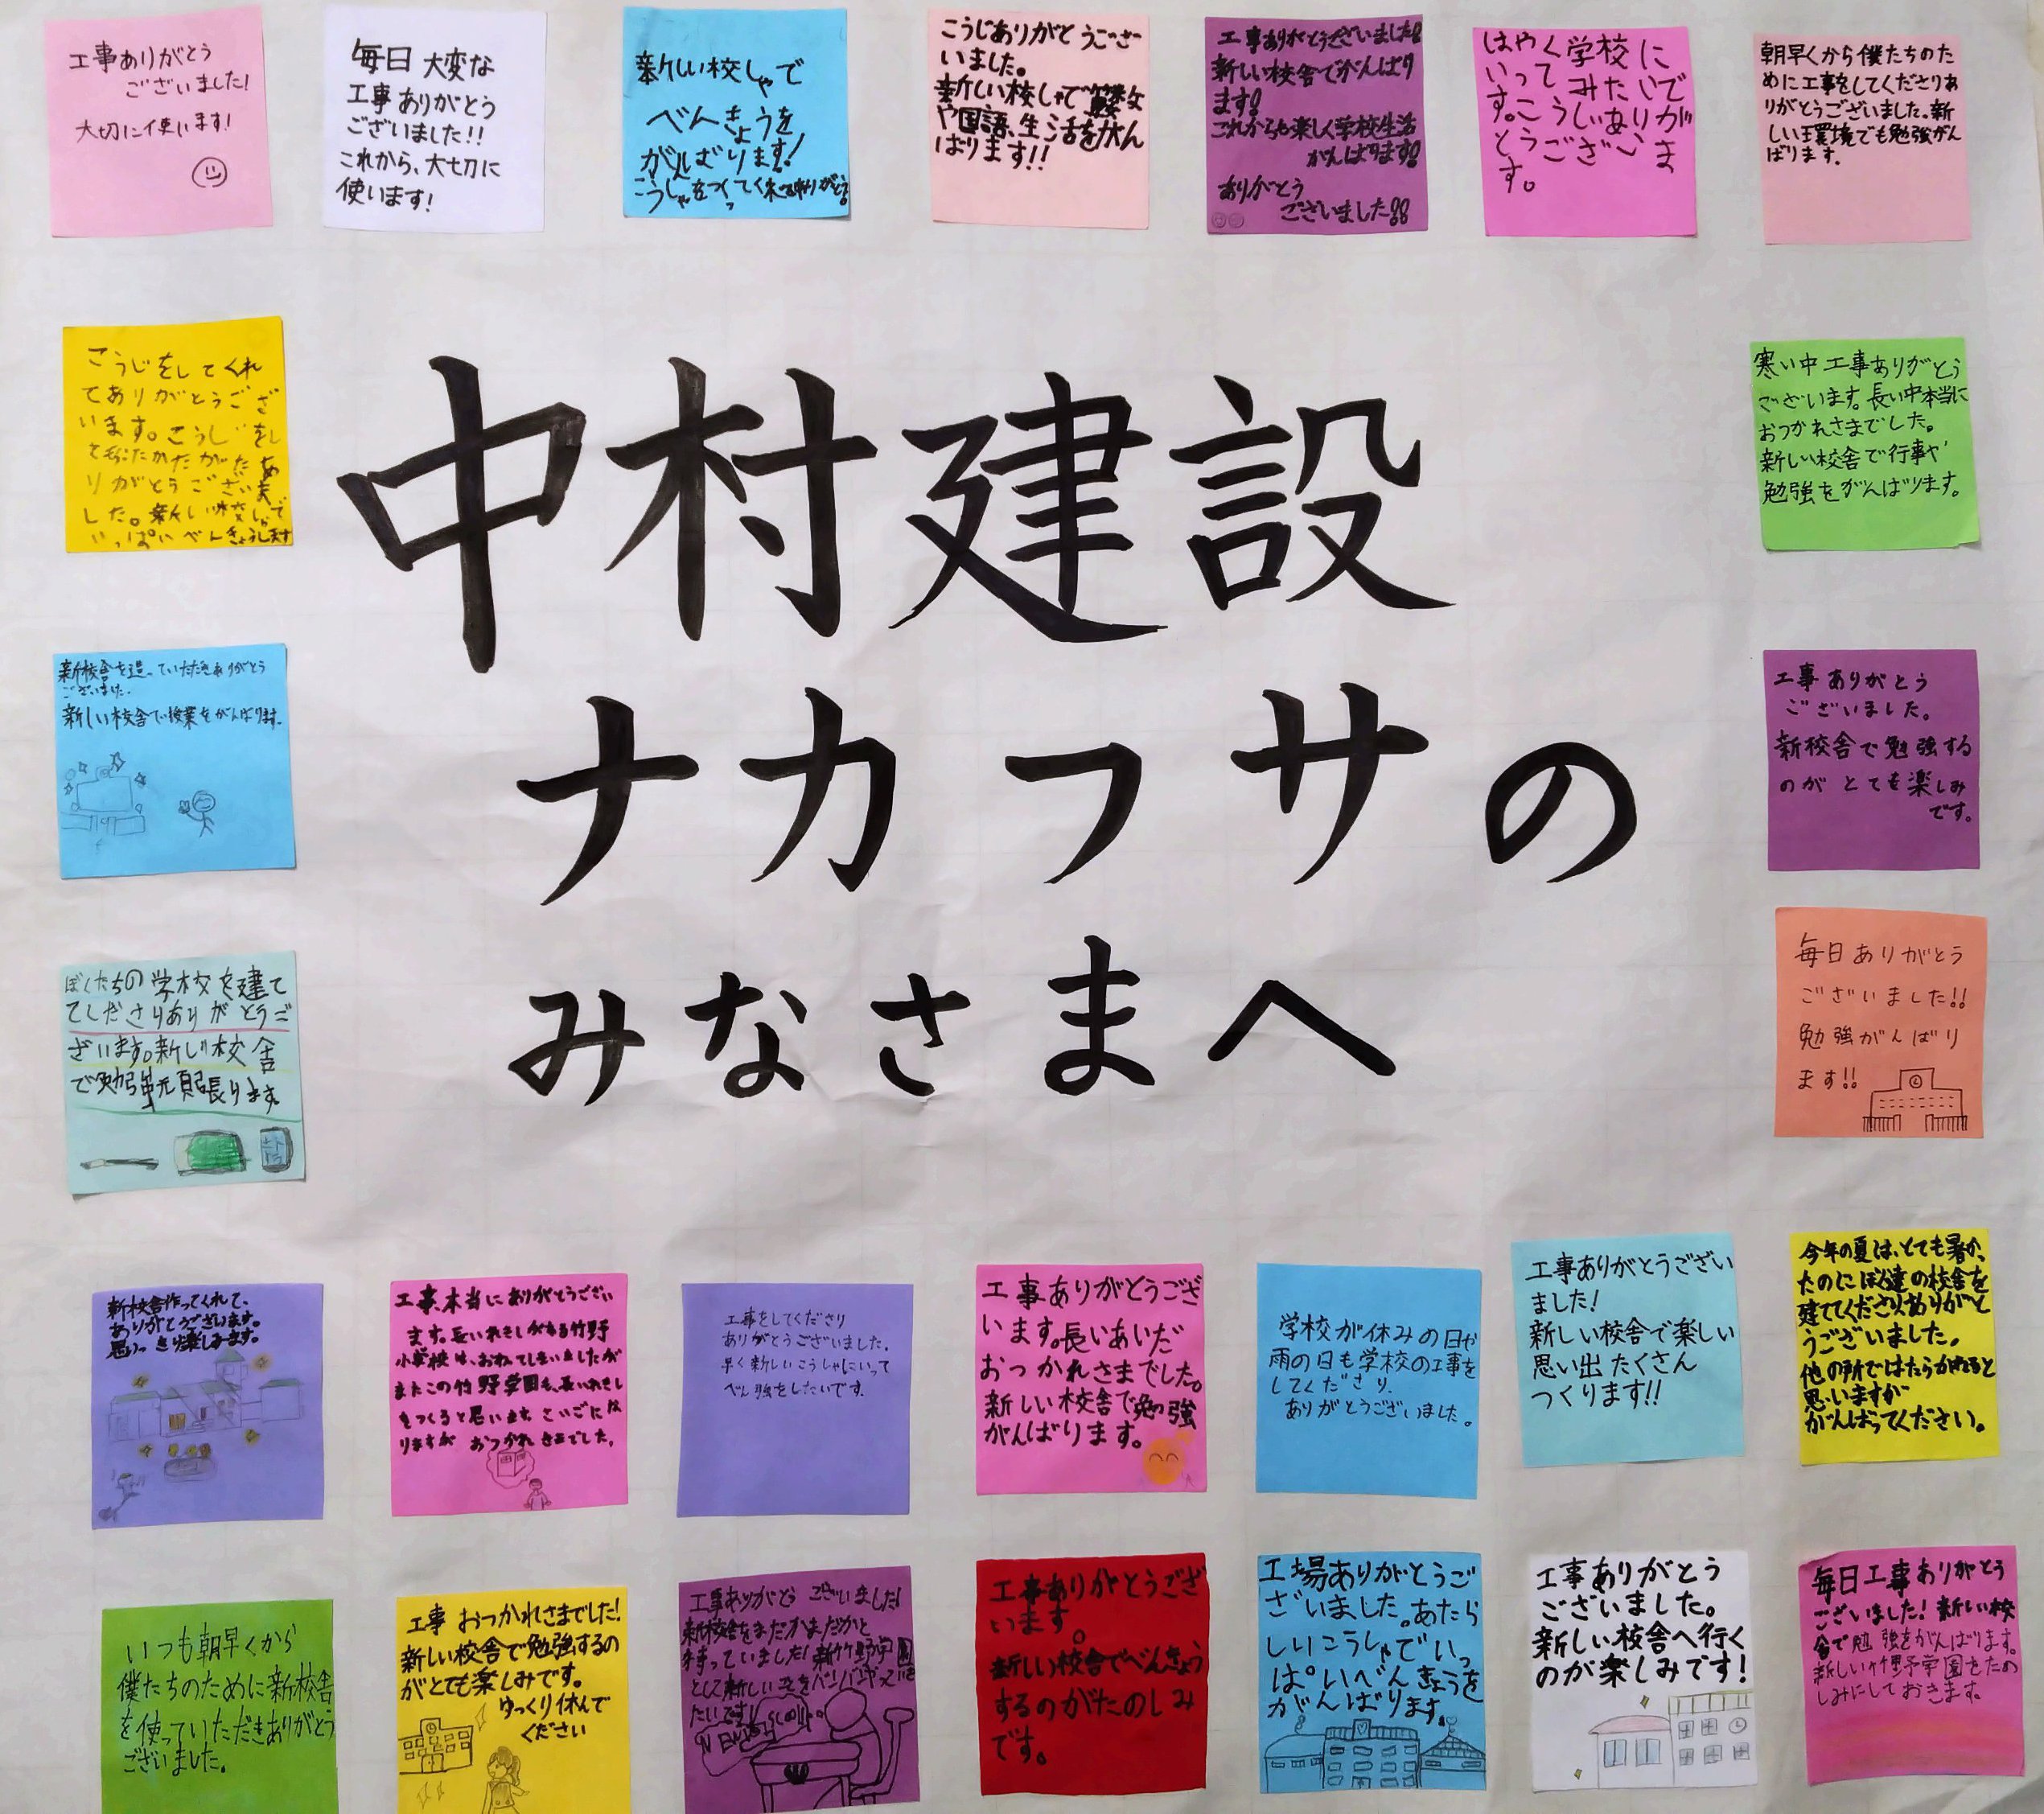 工事ありがとう
ございました!
大切に使います!
毎日大変な
工事ありがとう
ございました!!
これから、大切に
使います!
新しい校しゃで
べんきょうを
がんばります!
こうじありがとうござ
いました。
新しい校しゃで算数
や国語、生活をがん
ばります!!
工事ありがとうございました!
新しい校舎でがんばり
ます!
これからも楽しく学校生活
がんばります!
ありがとう
ございました!!
はやく学校に
いってみたいで
す。こうじありが
とうございま
す。
朝早くから僕たちのた
めに工事をしてくださりあ
りがとうございました。新
しい環境でも勉強がん
ばります。
こうじをしてくれ
てありがとうござ
います。こうじをし
りがとうございま
した。新しい校しゃで
いっぱいべんきょうします
中村建設
ナカフサの
みなさまへ
寒い中工事ありがとう
ございます。長い中本当に
おつかれさまでした。
新しい校舎で行事や
勉強をがんばります。
新校舎を造っていただきありがとう
ございました。
新しい校舎で授業をがんばります。
工事ありがとう
ございました。
新校舎で勉強する
のがとても楽しみ
です。
ぼくたちの学校を建て
てくださりありがとうご
ざいます。新しい校舎
で勉強頑張ります。
毎日ありがとう
ございました!!
勉強がんばり
ます!!
新校舎作ってくれて、
ありがとうございます。
思いっきり楽しみます。
工事、本当にありがとうござい
ます。長いれきしがある竹野
小学校は、おわってしまいましたが
またこの竹野学園も、長いれきし
をつくると思います。さいごにな
りますが おつかれさまでした。
工事をしてくださり
ありがとうございました。
早く新しいこうしゃにいって
べん強をしたいです。
工事ありがとうござ
います。長いあいだ
おつかれさまでした。
新しい校舎で勉強
がんばります。
学校が休みの日や
雨の日も学校の工事を
してくださり、
ありがとうございました。
工事ありがとうござい
ました!
新しい校舎で楽しい
思い出たくさん
つくります!!
今年の夏は、とても暑か、
たのにぼく達の校舎を
建ててくださりありがと
うございました。
他の所ではたらかれると
思いますが
がんばってください。
いつも朝早くから
僕たちのために新校舎
を使っていただきありがとう
ございました。
工事 おつかれさまでした!
新しい校舎で勉強するの
がとても楽しみです。
ゆっくり休んで
ください
工事ありがとう ございました!
新校舎をまだかまだかと
待っていました!新竹野学園
たいです!
工事ありがとうござ
います。
新しい校舎でべんきょう
するのがたのしみ
です。
工場ありがとうご
ざいました。あたら
しいこうしゃでいっ
ぱいべんきょうを
がんばります。
工事ありがとう
ございました。
新しい校舎へ行く
のが楽しみです!
毎日工事ありがとう
ございました! 新しい校
舎で勉強をがんばります。
新しい竹野学園をたの
しみにしておきます。